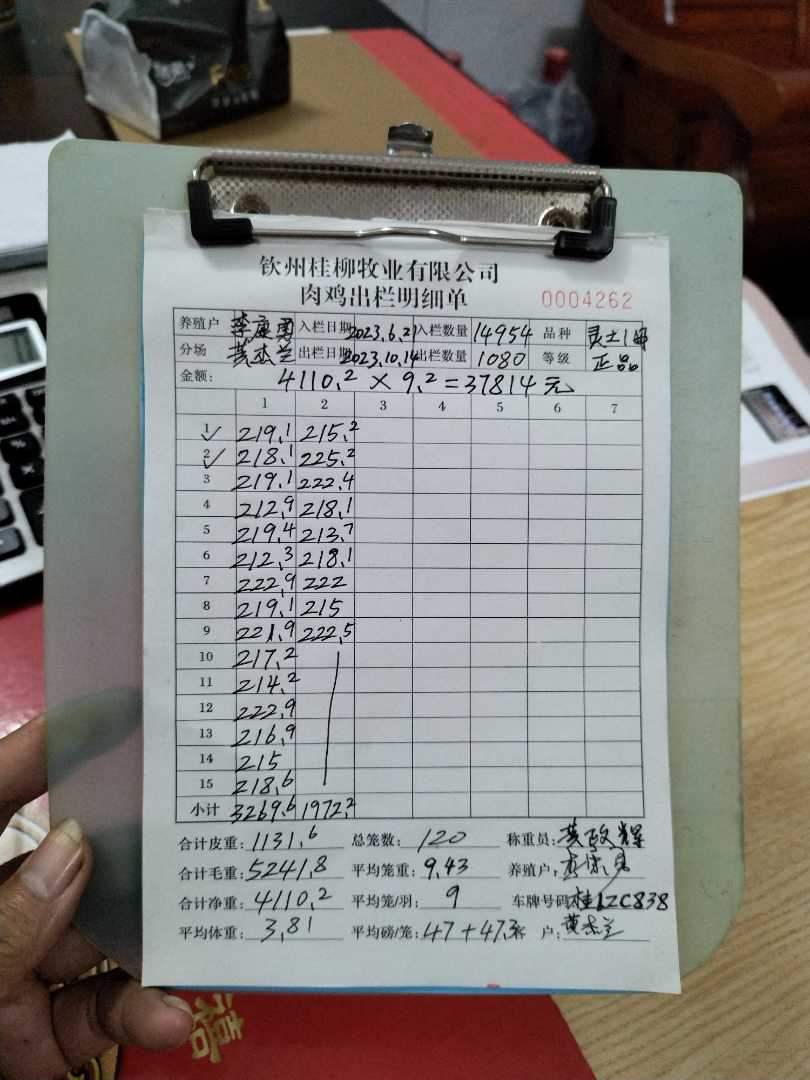 钦州桂柳牧业有限公司
肉鸡出栏明细单
0004262
养殖户 李康勇 入栏日期 2023.6.21 入栏数量 14954 品种 灵土1号
分场 黄杰兰 出栏日期 2023.10.14 出栏数量 1080 等级 正品
金额: 4110.2 × 9.2 = 37814元
1 2 3 4 5 6 7
1 219.1 215.2
2 218.1 225.2
3 219.1 222.4
4 212.9 218.1
5 219.4 213.7
6 212.3 218.1
7 222.9 222
8 219.1 215
9 221.9 222.5
10 217.2
11 214.2
12 222.9
13 216.9
14 215
15 218.6
小计 3269.6 1972.2
合计皮重: 1131.6 总笼数: 120 称重员: 黄政辉
合计毛重: 5241.8 平均笼重: 9.43 养殖户:
合计净重: 4110.2 平均笼/羽: 9 车牌号码: 桂LZC838
平均体重: 3.81 平均磅/笼: 47+47.3 客户: 黄杰兰
禧